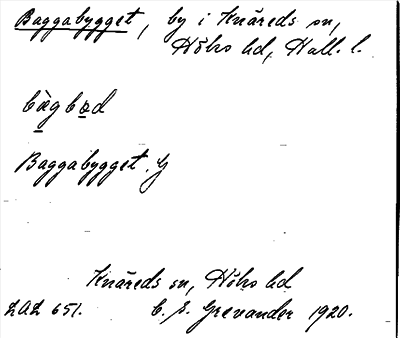 Baggabygget, by i Knäreds sn,
Höks hd, Hall. l.
bàgbød
Baggabygget. G
Knäreds sn, Höks hd
LAL 651. C. E. Grevander 1920.